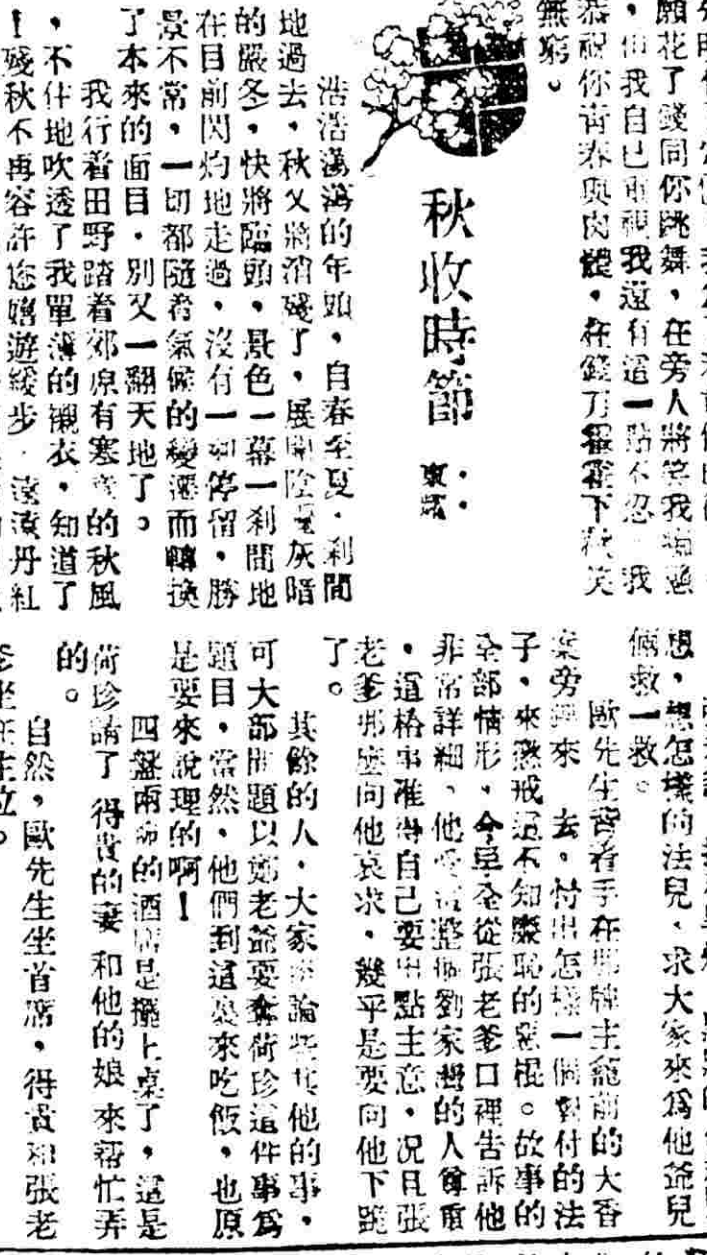 願花了錢同你跳舞,在旁人將笑我
我自己重視我還有這一點不忍 我
恭祝你青春與肉體,在錢刀 下 笑
無窮。
秋收時節
浩浩蕩蕩的年頭,自春至夏,剎間
地過去,秋又將消殘了,展開陰 灰暗
的嚴冬,快將臨頭,景色一幕一剎間地
在目前閃灼地走過,沒有一刻停留,勝
景不常,一切都隨着氣候的變遷而轉換
了本來的面目,別又一翻天地了。
我行着田野踏着郊原有寒意的秋風
,不住地吹透了我單薄的襯衣,知道了
!殘秋不再容許您嬉遊緩步 遠遠丹紅
想,想怎樣的法兒,求大家來爲他爺兒
倆救一救。
歐先生背着手在那牌主龕前的大香
案旁 來 去,忖出怎樣一個對付的法
子,來懲戒這不知廉恥的惡棍。故事的
全部情形,今早全從張老爹口裡告訴他
非常詳細,他 整個劉家灣的人尊重
,這樁事准得自己要出點主意,况且張
老爹那麼向他哀求,幾乎是要向他下跪
了。
其餘的人,大家 論些其他的事,
可大部問題以鄭老爺要奪荷珍這件事爲
題目,當然,他們到這裏來吃飯,也原
是要來說理的啊!
四盤兩 的酒席是擺上桌了,這是
荷珍請了 得貴的妻 和他的娘 來幫忙弄
的。
自然,歐先生坐首席,得貴和張老
爹坐在主位。